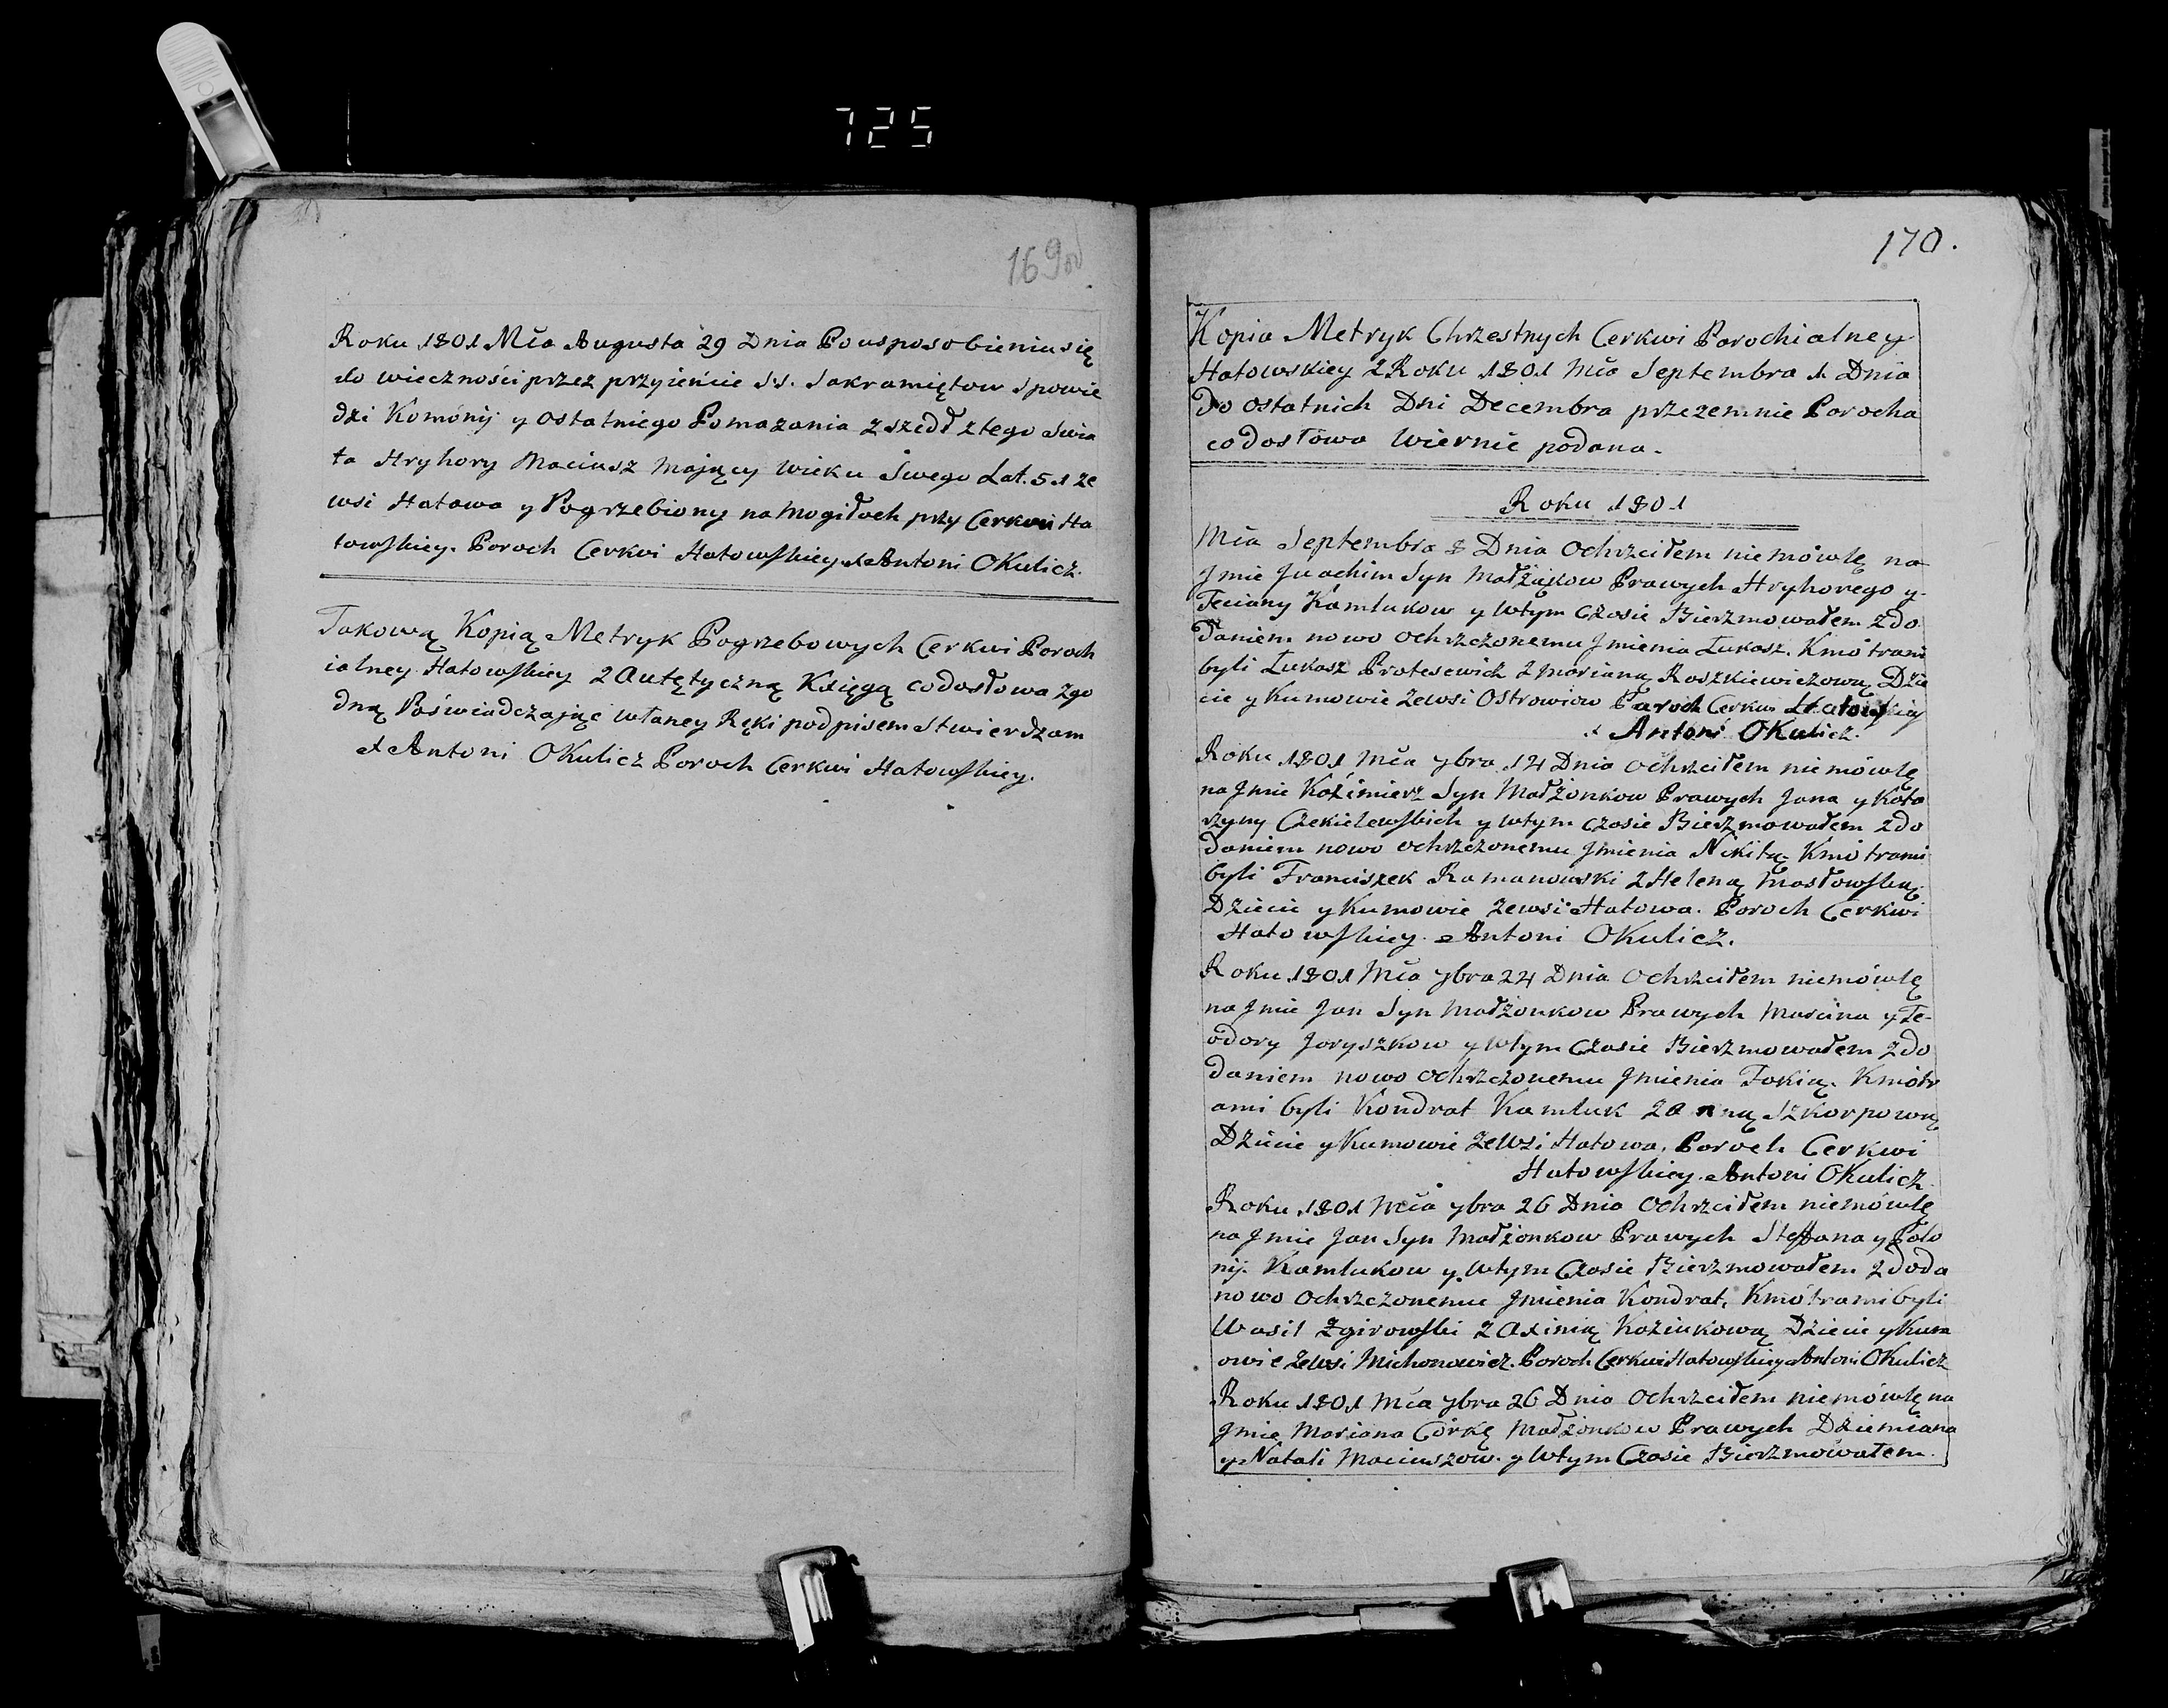 725
169 od
Roku 1801 Mča Augusta 29 Dnia Po usposobieniu się
do wieczności przez przyięńcie S.S. Sakramiętow Spowie
dzi Komónij y Ostatniego Pomazania zszedł ztego Swia
ta Hryhory Maciusz Mający Wieku Swego Lat. 51 ze
wsi Hatowa y Pogrzebiony na Mogiłach przy Cerkwi Ha
towskiey. Paroch Cerkwi Hatowskiey X Antoni Okulicz.
Takową Kopią Metryk Pogrzebowych Cerkwi Paroch
ialney Hatowskiey z Autętyczną Księgą codosłowa zgo
dną Poświadczając własney Ręki podpisem Stwierdzam
X Antoni Okulicz Paroch Cerkwi Hatowskiey.
170.
Kopia Metryk Chrzestnych Cerkwi Parochialney
Hatowskiey z Roku 1801 Mča Septembra 1 Dnia
do ostatnich Dni Decembra przezemnie Parocha
codosłowa Wiernie podana.
Roku 1801
Mča Septembra 8 Dnia Ochrzciłem niemówlę na
Jmie Juachim Syn Małżąkow Prawych Hryhorego y
Teciany Kamlukow y wtym Czasie Bierzmowałem zdo
daniem nowo ochrzczonemu Jmienia Łukasz. Kmótrami
byli Łukasz Protesewicz z Marianą Roszkiewiczową Dzie
cie y Kumowie zewsi Ostrowiow Paroch Cerkw Hatowskiey
X Antoni Okulicz.
Roku 1801 Mča 7bra 14 Dnia ochrzciłem niemówlę
na Jmie Kaźimierz Syn Małżonkow Prawych Jana y Kata
rzyny Czekielewskich y wtym czasie Bierzmowałem zdo
daniem nowo ochrzczonemu Jmienia Nikitą. Kmótrami
byli Franciszek Ramanowski z Heleną Masłowską.
Dziecie y Kumowie zewsi Hatowa. Paroch Cerkwi
Hatowskiey X Antoni Okulicz.
Roku 1801 Mča 7bra 24 Dnia Ochrzciłem niemówlę
na Jmie Jan Syn Małżonkow Prawych Marcina y Te-
odory Jaryszkow y wtym Czasie Bierzmowałem zdo
daniem nowo ochrzczonemu Jmienia Fokią. Kmótr
ami byli Kondrat Kamluk z Anną Szkorpową
Dziecie y Kumowie zewsi Hatowa. Paroch Cerkwi
Hatowskiey. Antoni Okulicz
Roku 1801 Mča 7bra 26 Dnia Ochrzciłem niemówlę
na Jmie Jan Syn Małżonkow Prawych Steffana y Polo
nij. Kamlukow y wtym Czasie Bierzmowałem zdoda
nowo Ochrzczonemu Jmienia Kondrat. Kmótrami byli
Wasil Zgirowski z Axinią Koziukową Dziecie y Kum
owie zewsi Michonowicz. Paroch Cerkwi Hatowskiey Antoni Okulicz
Roku 1801 Mča 7bra 26 Dnia Ochrzciłem niemówlę na
Jmię Mariana Córkę Małżonkow Prawych Dziemiana
y Natali Maciuszow. y wtym Czasie Bierzmowałem.